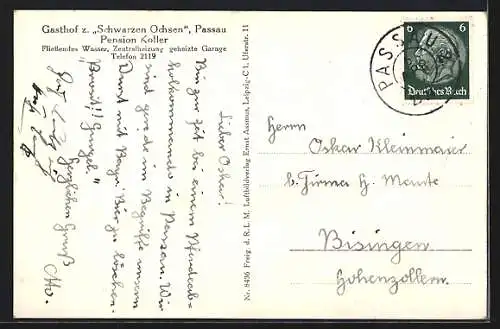 Gasthof z. „Schwarzen Ochsen", Passau
Pension Koller
Fließendes Wasser, Zentralheizung geheizte Garage
Telefon 2119
Lieber Oskar!
Bin zur Zeit bei einem Pferdeab-
holkommando in Passau. Wir
sind gerade im Begriffe unsern
Durst mit Bayr. Bier zu löschen.
"Prosit!! Gurgel."
Herzlichen Gruß
Otto.
Nr. 8436 Freig. d. R. L. M. Luftbildverlag Ernst Assmus, Leipzig-C 1, Uferstr. 11
PASSAU
6 6
Deutsches Reich
Herrn
Oskar Kleinmaier
b. Firma H. Maute
Bisingen
Hohenzollern.